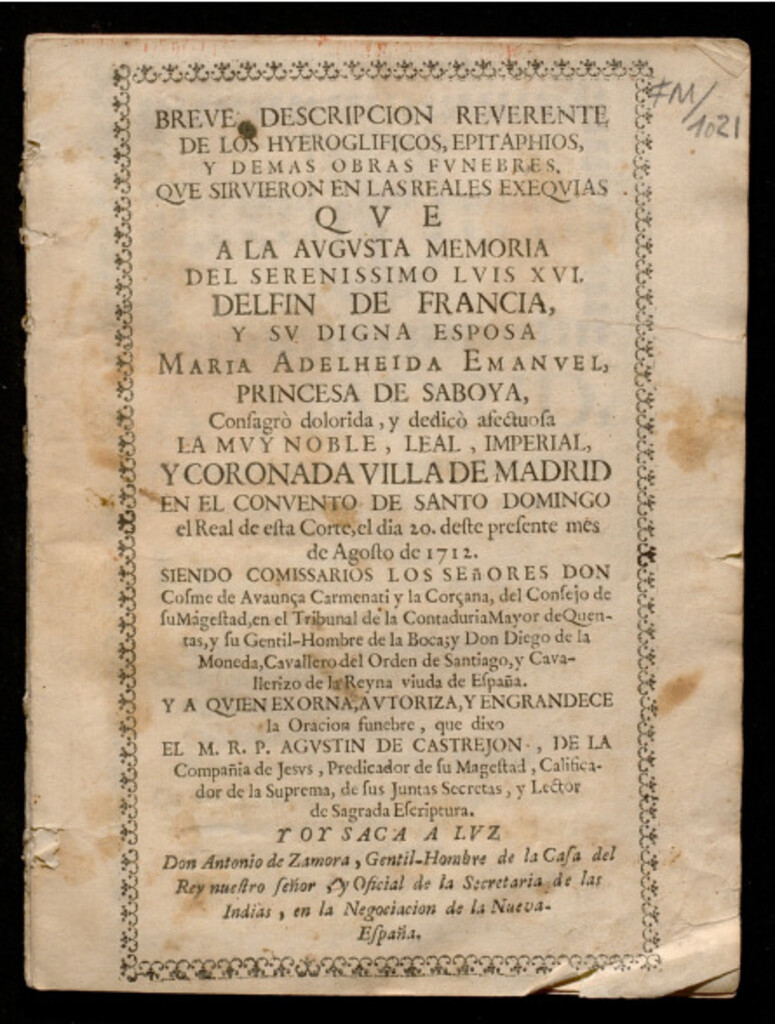 FM/
1021
BREVE DESCRIPCION REVERENTE
DE LOS HYEROGLIFICOS, EPITAPHIOS,
Y DEMAS OBRAS FVNEBRES,
QVE SIRVIERON EN LAS REALES EXEQVIAS
QVE
A LA AVGVSTA MEMORIA
DEL SERENISSIMO LVIS XVI.
DELFIN DE FRANCIA,
Y SV DIGNA ESPOSA
MARIA ADELHEIDA EMANVEL,
PRINCESA DE SABOYA,
Conſagrò dolorida, y dedicò afectuoſa
LA MVY NOBLE, LEAL, IMPERIAL,
Y CORONADA VILLA DE MADRID
EN EL CONVENTO DE SANTO DOMINGO
el Real de eſta Corte, el dia 20. deſte preſente mes
de Agoſto de 1712.
SIENDO COMISSARIOS LOS SEñORES DON
Coſme de Avaunça Carmenati y la Corçana, del Conſejo de
ſu Mageſtad, en el Tribunal de la Contaduria Mayor de Quen-
tas, y ſu Gentil-Hombre de la Boca; y Don Diego de la
Moneda, Cavallero del Orden de Santiago, y Cava-
llerizo de la Reyna viuda de Eſpaña.
Y A QVIEN EXORNA, AVTORIZA, Y ENGRANDECE
la Oracion funebre, que dixo
EL M. R. P. AGVSTIN DE CASTREJON, DE LA
Compañia de Jesvs, Predicador de ſu Mageſtad, Califica-
dor de la Suprema, de ſus Juntas Secretas, y Lector
de Sagrada Eſcriptura.
Y OY SACA A LVZ
Don Antonio de Zamora, Gentil-Hombre de la Caſa del
Rey nueſtro ſeñor, y Oficial de la Secretaria de las
Indias, en la Negociacion de la Nueva-
Eſpaña.